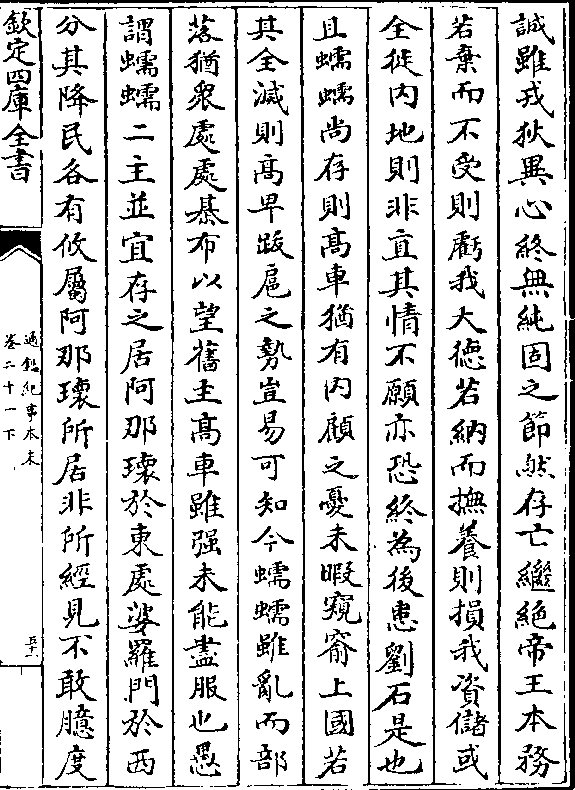 誠雖戎狄異心終無純固之節然存亡繼絶帝王本務
若棄而不受則虧我大德若納而撫養則損我資儲或
全徙内地則非直其情不願亦恐終為後患劉石是也
且蠕蠕尚存則髙車猶有内顧之憂未暇窺窬上國若
其全滅則髙車跋扈之勢豈易可知今蠕蠕雖亂而部
落猶衆處處棊布以望舊主髙車雖强未能盡服也愚
謂蠕蠕二主並宜存之居阿那瓌於東處婆羅門於西
分其降民各有攸屬阿那瓌所居非所經見不敢臆度
欽定四庫全書
通鑑紀事本末
卷二十一下
五十